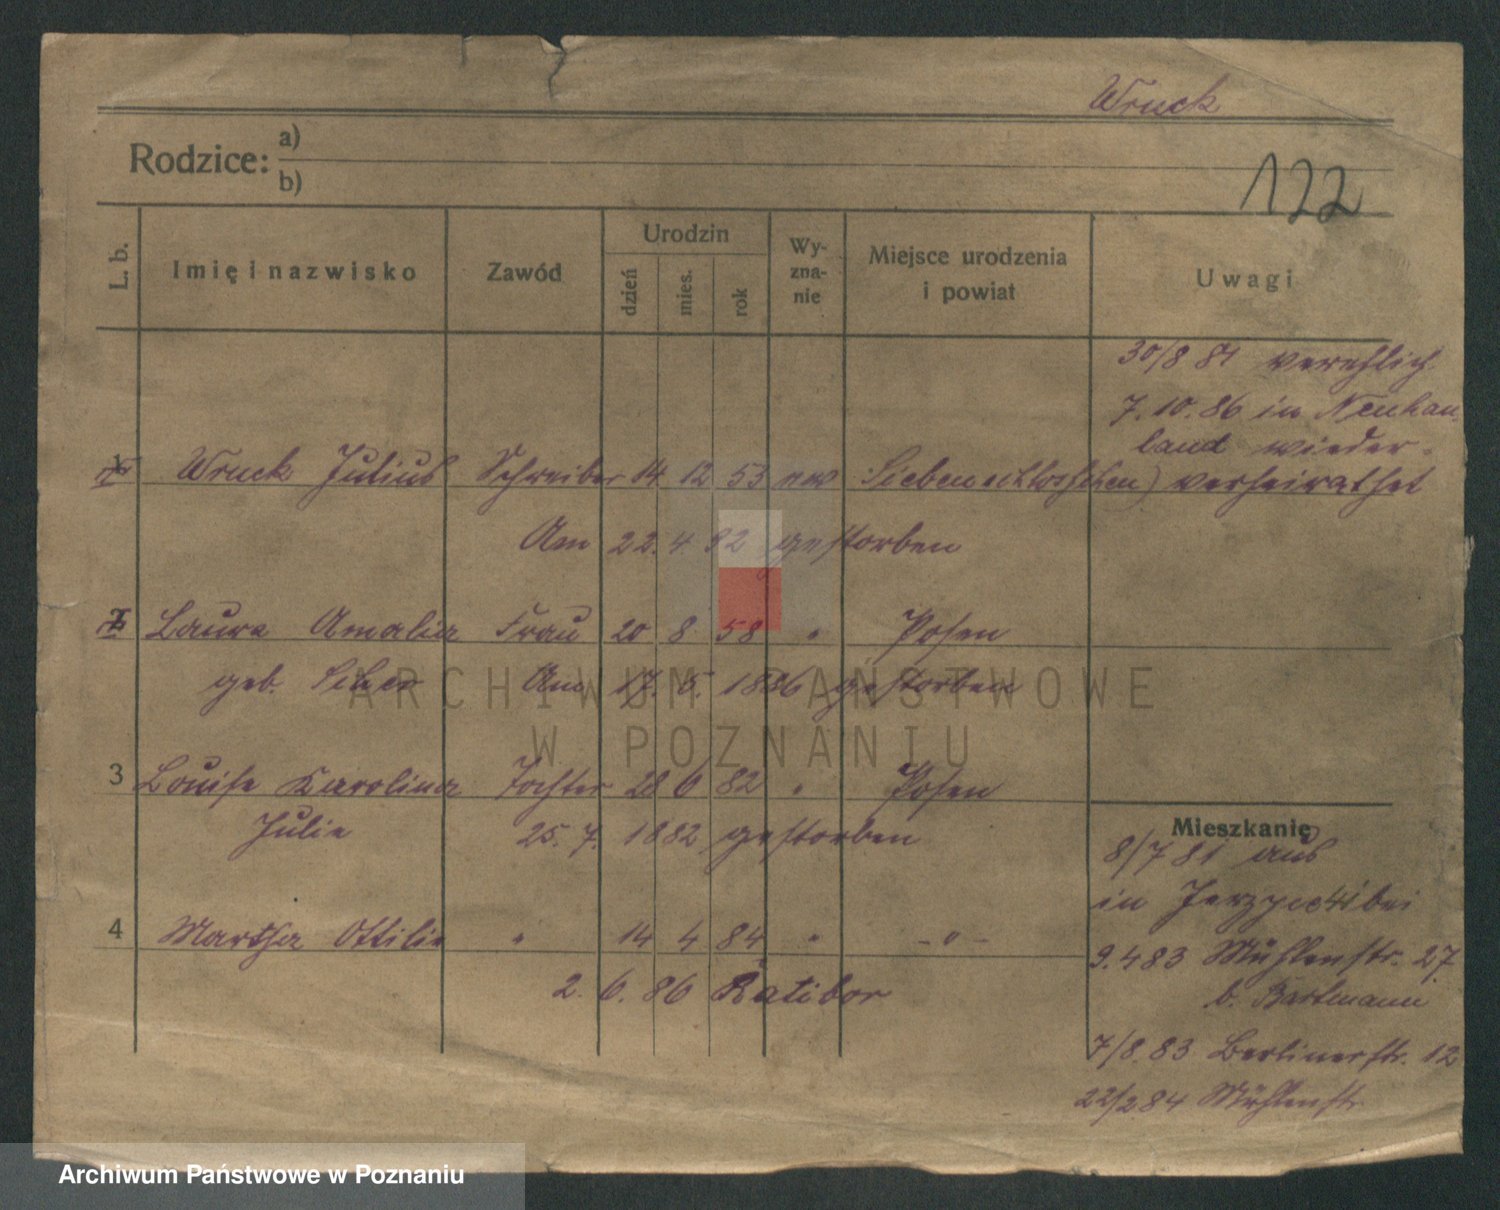 Wruck
Rodzice: a)
b)
122
L. b. Imię i nazwisko Zawód Urodzin dzień mies. rok Wy-zna-nie Miejsce urodzenia i powiat Uwagi
30/8 81 verehlich.
7.10.86 in
land wieder-
1 Wruck Julius Schreiber 14 12 53 ev verheirathet
Am 22. 4 92 gestorben
2 Laura Amalia Frau 20 8 58 " Posen
geb. Am 17. 5. 1886 gestorben
3 Louise Karolina Tochter 28 6 82 " Posen
Julie 25. 7. 1882 gestorben
Mieszkanie
8/7 81 aus
in bei
4 Martha Ottilie " 14 4 84 " - " -
9.4 83 Mühlenstr. 27
2. 6. 86 Ratibor
b. Bartmann
7/8. 83 Berlinerstr. 12
22/2 84 Mühlenstr.
ARCHIWUM PAŃSTWOWE
W POZNANIU
Archiwum Państwowe w Poznaniu